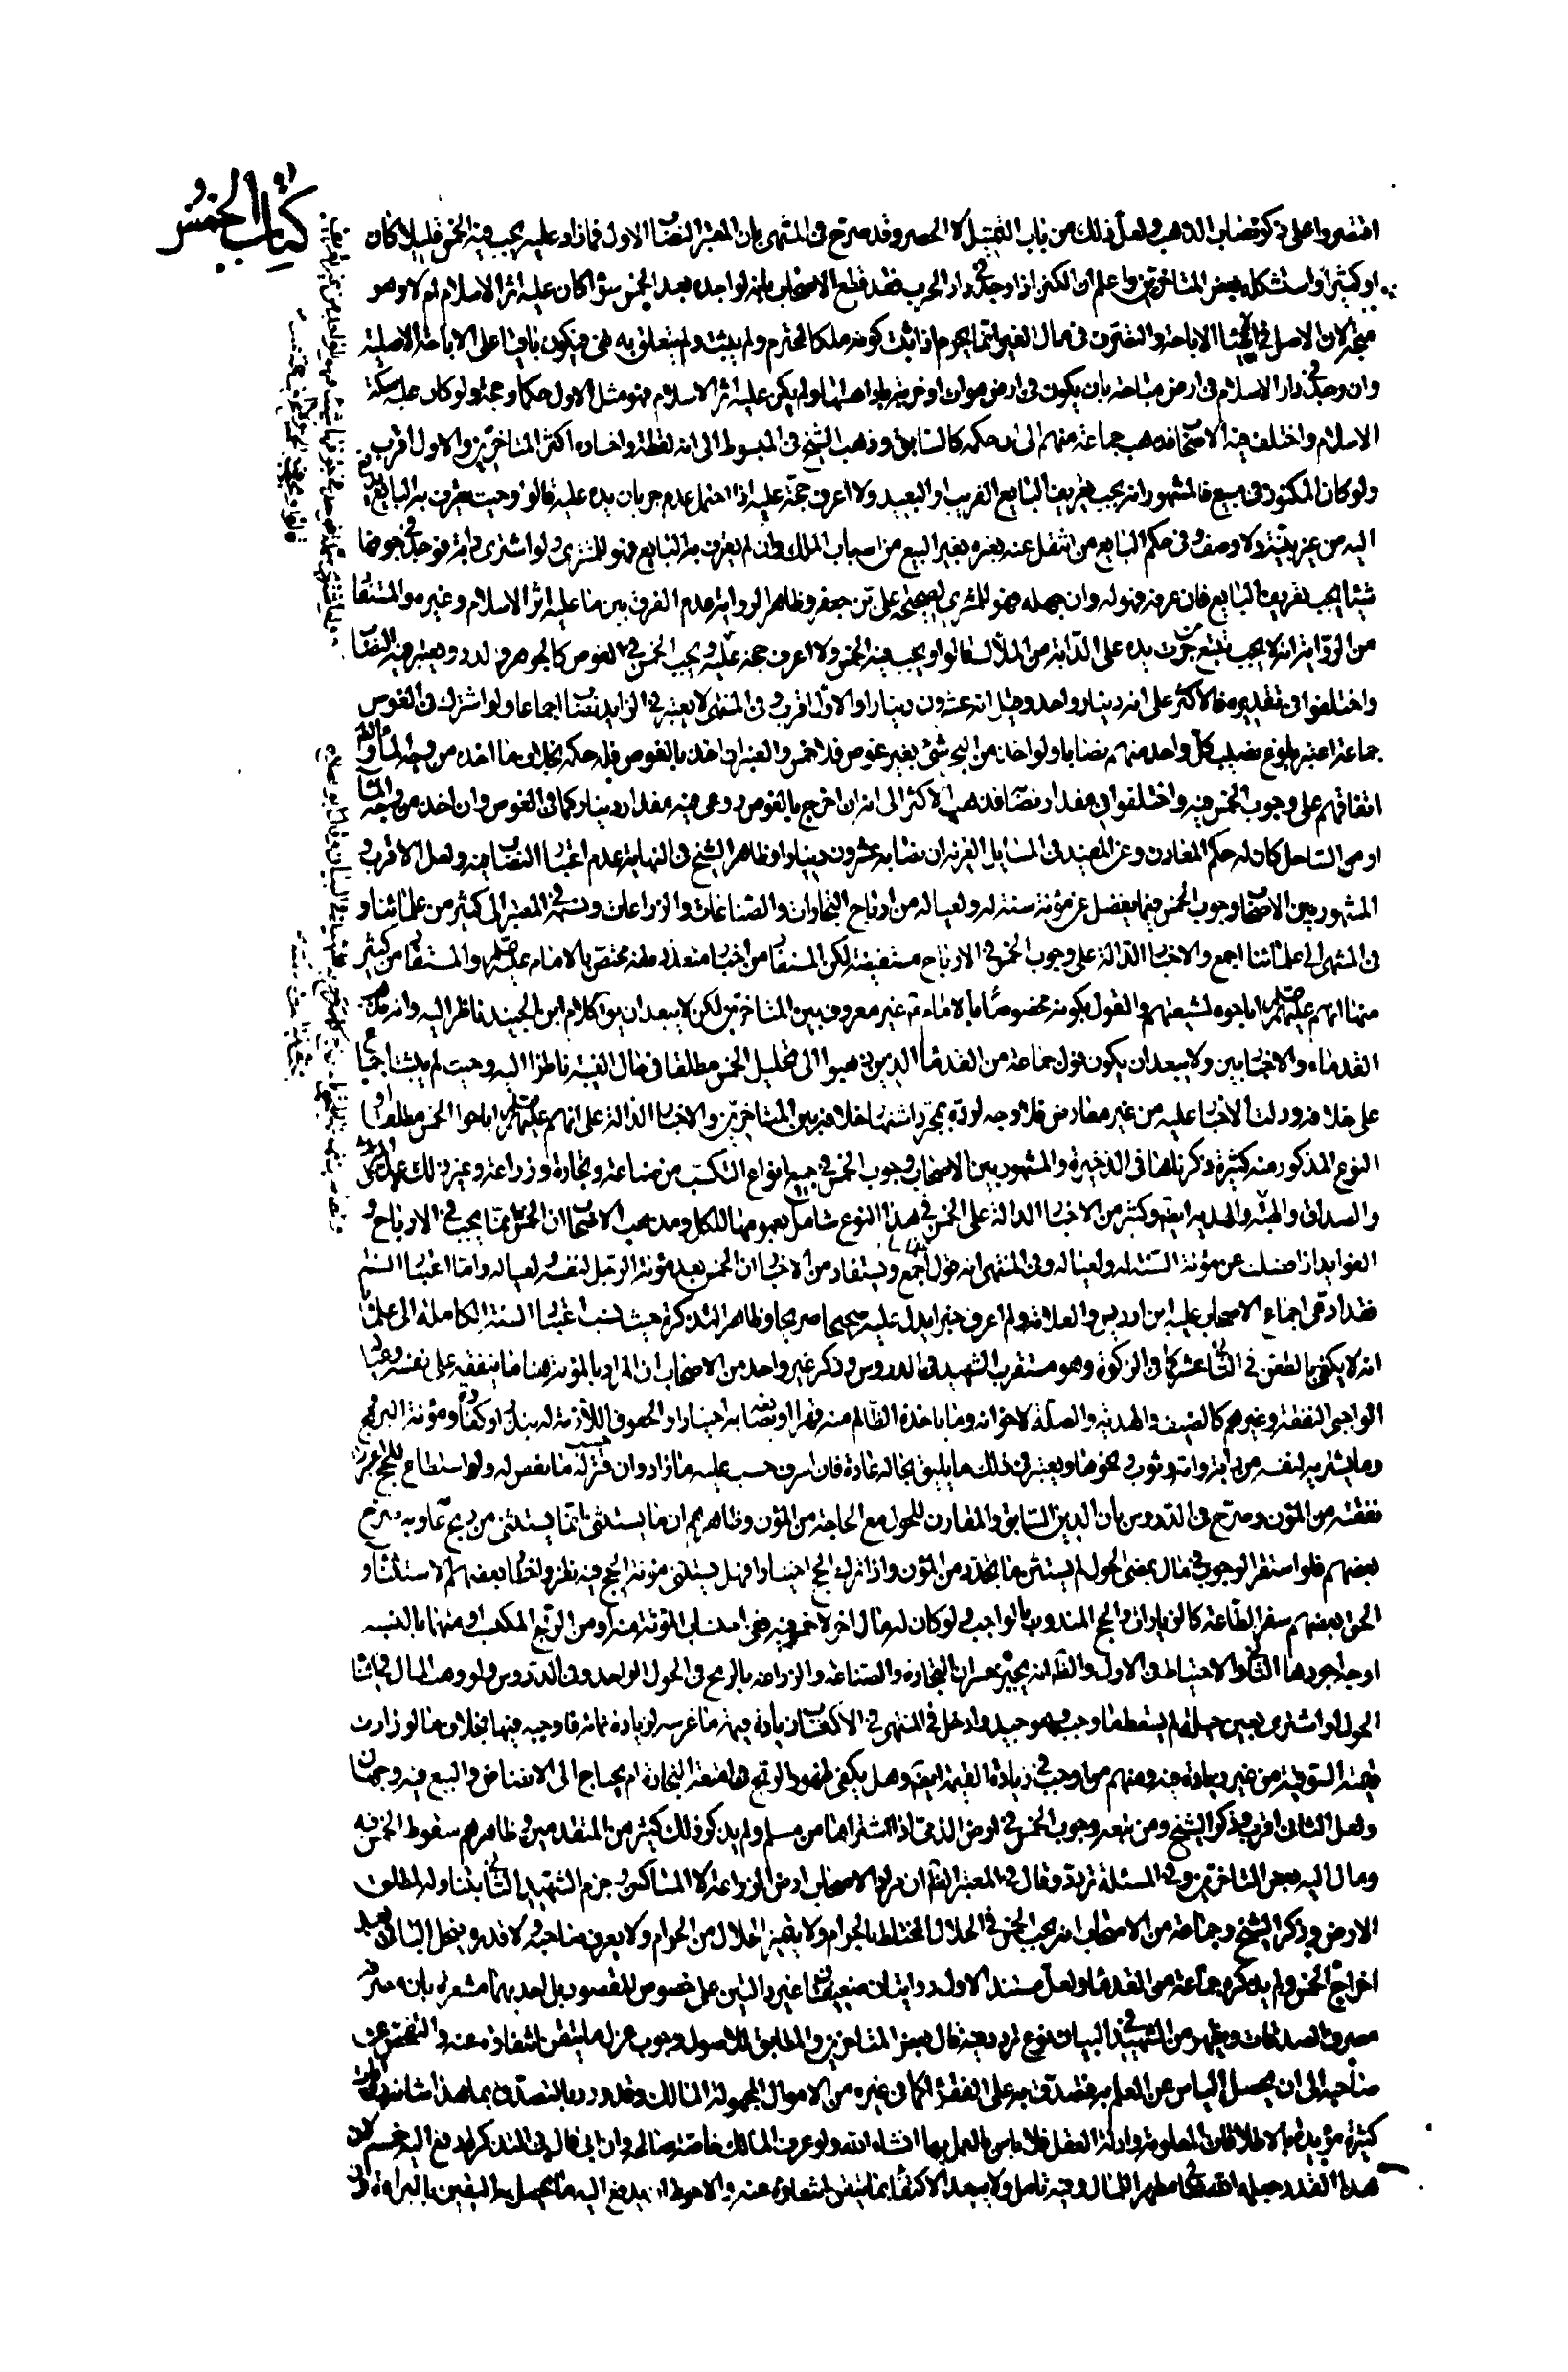 كتاب الخمس
اقتصروا على ذكر نصاب الذهب ولعل ذلك من باب التمثيل لا الحصر وقد صرح في المنتهى بان المعتبر النصاب الاول فما زاد عليه يجب فيه الخمس قليلا كان
او كثيرا واستشكله بعض المتاخرين واعلم ان الكنز اذا وجد في دار الحرب فقد قطع الاصحاب بانه لواجده بعد الخمس سواء كان عليه اثر الاسلام ام لا وهو
متجه لان الاصل في الاشياء الاباحة والتصرف في مال الغير انما يحرم اذا ثبت كونه ملكا لمحترم ولم يثبت ولم يتعلق به نهي فيكون باقيا على الاباحة الاصلية
وان وجد في دار الاسلام في ارض مباحة بان يكون في ارض موات او خربة باد اهلها ولم يكن عليه اثر الاسلام فهو مثل الاول حكما وحجة ولو كان عليه سكة
الاسلام واختلف فيه الاصحاب فذهب جماعة منهم الى ان حكمه كالسابق وذهب الشيخ في المبسوط الى انه لقطة واختاره اكثر المتاخرين والاول اقرب
ولو كان المكنوز في مبيع فالمشهور انه يجب تعريفه البايع القريب او البعيد ولا اعرف حجة عليه اذا احتمل عدم جريان يده عليه قالوا وحيث يعرف به البايع
اليه من غير بينة ولا وصف وفي حكم البايع من انتقل عنه بغيره بغير البيع من اسباب الملك وان لم يعرف به البايع فهو للمشتري ولو اشترى دابة فوجد في جوفها
شيئا يجب تعريفه البايع فان عرفه فهو له وان جهله فهو للمشري لصحيحة علي بن جعفر وظاهر الرواية عدم الفرق بين ما عليه اثر الاسلام وغيره والمستفاد
من الرواية انه لا يجب تتبع من جرت يده على الدابة من الملاك قالوا ويجب فيه الخمس ولا اعرف حجة عليه ويجب الخمس في الغوص كالجوهر والدرر ويعتبر فيه النصاب
واختلفوا في تقديره فالاكثر على انه دينار واحد وقيل انه عشرون دينارا والاول اقرب وفي المنتهى لا يعتبر في الزايد نصاب اجماعا ولو اشترك في الغوص
جماعة اعتبر بلوغ نصيب كل واحد منهم نصابا ولو اخذ من البحر شيء بغير غوص فلا خمس والعنبر ان اخذ بالغوص فله حكمه بخلاف ما اخذ من وجه الماء
اتفاقهم على وجوب الخمس فيه واختلفوا في مقدار نصابه فذهب الاكثر الى انه ان اخرج بالغوص روعي فيه مقدار دينار كما في الغوص وان اخذ من وجه الماء
او من الساحل كان له حكم المعادن وعن المفيد في المسايل الغرية ان نصابه عشرون دينارا وظاهر الشيخ في النهاية عدم اعتبار النصاب فيه ولعل الاقرب و
المشهور بين الاصحاب وجوب الخمس فيما يفضل عن مؤنة سنة له ولعياله من ارباح التجارات والصناعات والزراعات ونسبه في المعتبر الى كثير من علمائنا و
في المنتهى الى علمائنا اجمع والاخبار الدالة على وجوب الخمس في الارباح مستفيضة لكن المستفاد من اخبار متعددة انه مختص بالامام عليه السلام والمستفاد من كثير
منها انهم عليهم السلام اباحوه لشيعتهم والقول بكونه مخصوصا بالامام غير معروف بين المتاخرين لكن لا يبعد ان يق كلام ابن الجنيد ناظر اليه وانه مذهب
القدماء والاخباريين ولا يبعد ان يكون قول جماعة من القدماء الذين ذهبوا الى تحليل الخمس مطلقا في حال الغيبة ناظرا اليه وحيث لم يثبت اجماع
على خلافه ودلت الاخبار عليه من غير معارض فلا وجه لرده بمجرد اشتهار خلافه بين المتاخرين والاخبار الدالة على انهم عليهم السلام اباحوا الخمس مطلقا او
النوع المذكور منه كثيرة ذكرناها في الذخيرة والمشهور بين الاصحاب وجوب الخمس في جميع انواع التكسب من صناعة وتجارة وزراعة وغير ذلك عدا
والصداق والهبة والهدية ايضا وكثير من الاخبار الدالة على الخمس في هذا النوع شامل بعمومها للكل ومذهب الاصحاب ان الخمس انما يجب في الارباح و
الفوايد اذا فضلت عن مؤنة السنة له ولعياله وفي المنتهى انه قول علمائنا اجمع ويستفاد من الاخبار ان الخمس بعد مؤنة الرجل لنفسه ولعياله واما اعتبار السنة
فقد ادعى اجماع الاصحاب عليه ابن ادريس والعلامة ولم اعرف خبرا يدل عليه صحيحا صريحا وظاهر التذكرة حيث نسب اعتبار السنة الكاملة الى علمائنا
انه لا يكفي الطعن في الثاني عشر كما في الزكوة وهو مستقرب الشهيد في الدروس وذكر غير واحد من الاصحاب ان المراد بالمؤنة هنا ما ينفقه على نفسه وعياله
الواجبي النفقة وغيرهم كالضيف والهدية والصلة لاخوانه وما ياخذه الظالم منه قهرا او يصانعه به اختيارا والحقوق اللازمة له بنذر او كفارة ومؤنة التزويج
وما يشتريه لنفسه من دابة وامة وثوب ونحوها ويعتبر في ذلك ما يليق بحاله عادة فان اسرف حسب عليه ما زاد وان قتر حسب له ما نقص له ولو استطاع للحج
نفقته من المؤن وصرح في الدروس بان الدين السابق والمقارن للحول مع الحاجة من المؤن وظاهرهم ان ما يستثنى انما يستثنى من ربح عامه وبه صرح
بعضهم فلو استقر الوجوب في مال بمضي الحول لم يستثن ما تجدد من المؤن واذا ترك الحج اختيارا فهل يستثنى مؤنة الحج فيه نظر واختار بعضهم الاستثناء و
الحق بعضهم سفر الطاعة كالزيارات والحج المندوب بالواجب ولو كان له مال اخر لا خمس فيه ففي احتساب المؤنة منه او من الربح المكتسب او منهما بالنسبة
اوجه اجودها الثاني والاحتياط في الاول والظاهر انه يجبر خسران التجارة والصناعة والزراعة بالربح في الحول الواحد وفي الدروس ولو وهب المال في اثناء
الحول او اشترى بغبن حيلة لم يسقط ما وجب وهو جيد وادخل في المنتهى في الاكتساب زيادة قيمة ما غرسه لزيادة نمائه فاوجبه فيها بخلاف ما لو زادت
قيمته السوقية من غير زيادة فيه ومنهم من اوجب في زيادة القيمة ايضا وهل يكفي ظهور الربح في امتعة التجارة ام يحتاج الى الانضاض والبيع فيه وجهان
ولعل الثاني اقرب وذكر الشيخ ومن تبعه وجوب الخمس في ارض الذمي اذا اشتراها من مسلم ولم يذكر ذلك كثير من المتقدمين وظاهرهم سقوط الخمس فيه
ومال اليه بعض المتاخرين وفي المسئلة تردد وقال في المعتبر الظاهر ان مراد الاصحاب ارض الزراعة لا المساكن وجزم الشهيد الثاني بتناوله لمطلق
الارض وذكر الشيخ وجماعة من الاصحاب انه يجب الخمس في الحلال المختلط بالحرام ولا يتميز الحلال من الحرام ولا يعرف صاحبه ولا قدره ويحل الباقي بعد
اخراج الخمس ولم يذكره جماعة من القدماء ولعل مستند الاول روايتان ضعيفتان غير دالتين على خصوص المقصود بل احديهما مشعرة بان مصرفه
مصرف الصدقات ويظهر من الشهيد في البيان نوع تردد فيه قال بعض المتاخرين والمطابق للاصول وجوب عزل ما يتيقن انتفاؤه عنه والتفحص عن
صاحبه الى ان يحصل الياس من العلم به فيتصدق به على الفقراء كما في غيره من الاموال المجهولة المالك وقد ورد بالتصدق بما هذا شانه روايات
كثيرة مؤيدة بالاطلاقات المعلومة وادلة العقل فلا باس بالعمل بها انشاء الله ولو عرف المالك خاصة صالحه فان ابى قال في التذكرة دفع اليه خمسه لان
هذا القدر جعله الله تعالى مطهرا للمال وفيه تامل ولا يبعد الاكتفاء بما يتيقن انتفاؤه عنه والاحوط ان يدفع اليه ما يحصل به اليقين بالبراءة